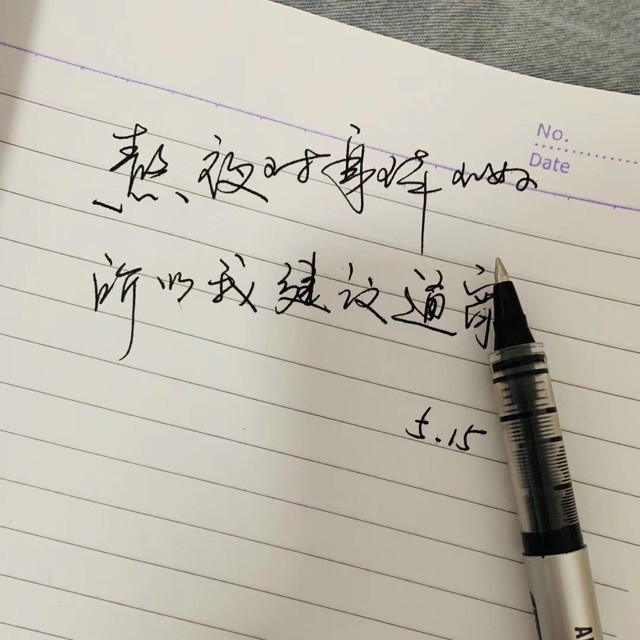 No.
Date
熬夜对身体不好
所以我建议通宵
5.15